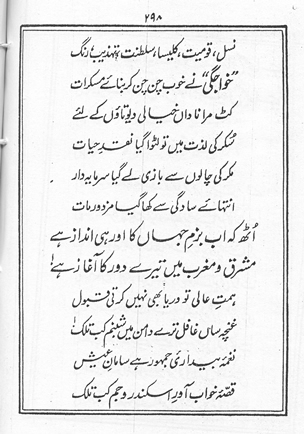 ۲۹۸
نسل، قومیت، کلیسا، سلطنت، تہذیب، رنگ
”خواجگی“ نے خوب چن چن کر بنائے مسکرات
کٹ مرا ناداں خیالی دیوتاؤں کے لئے
سُکر کی لذت میں تو لٹوا گیا نقدِ حیات
مکر کی چالوں سے بازی لے گیا سرمایہ دار
انتہائے سادگی سے کھا گیا مزدور مات
اُٹھ کہ اب بزمِ جہاں کا اور ہی انداز ہے
مشرق و مغرب میں تیرے دور کا آغاز ہے
ہمتِ عالی تو دریا بھی نہیں کرتی قبول
غنچہ ساں غافل ترے دامن میں شبنم کب تلک
نغمۂ بیداریٔ جمہور ہے سامانِ عیش
قصّۂ خواب آورِ اسکندر و جم کب تلک